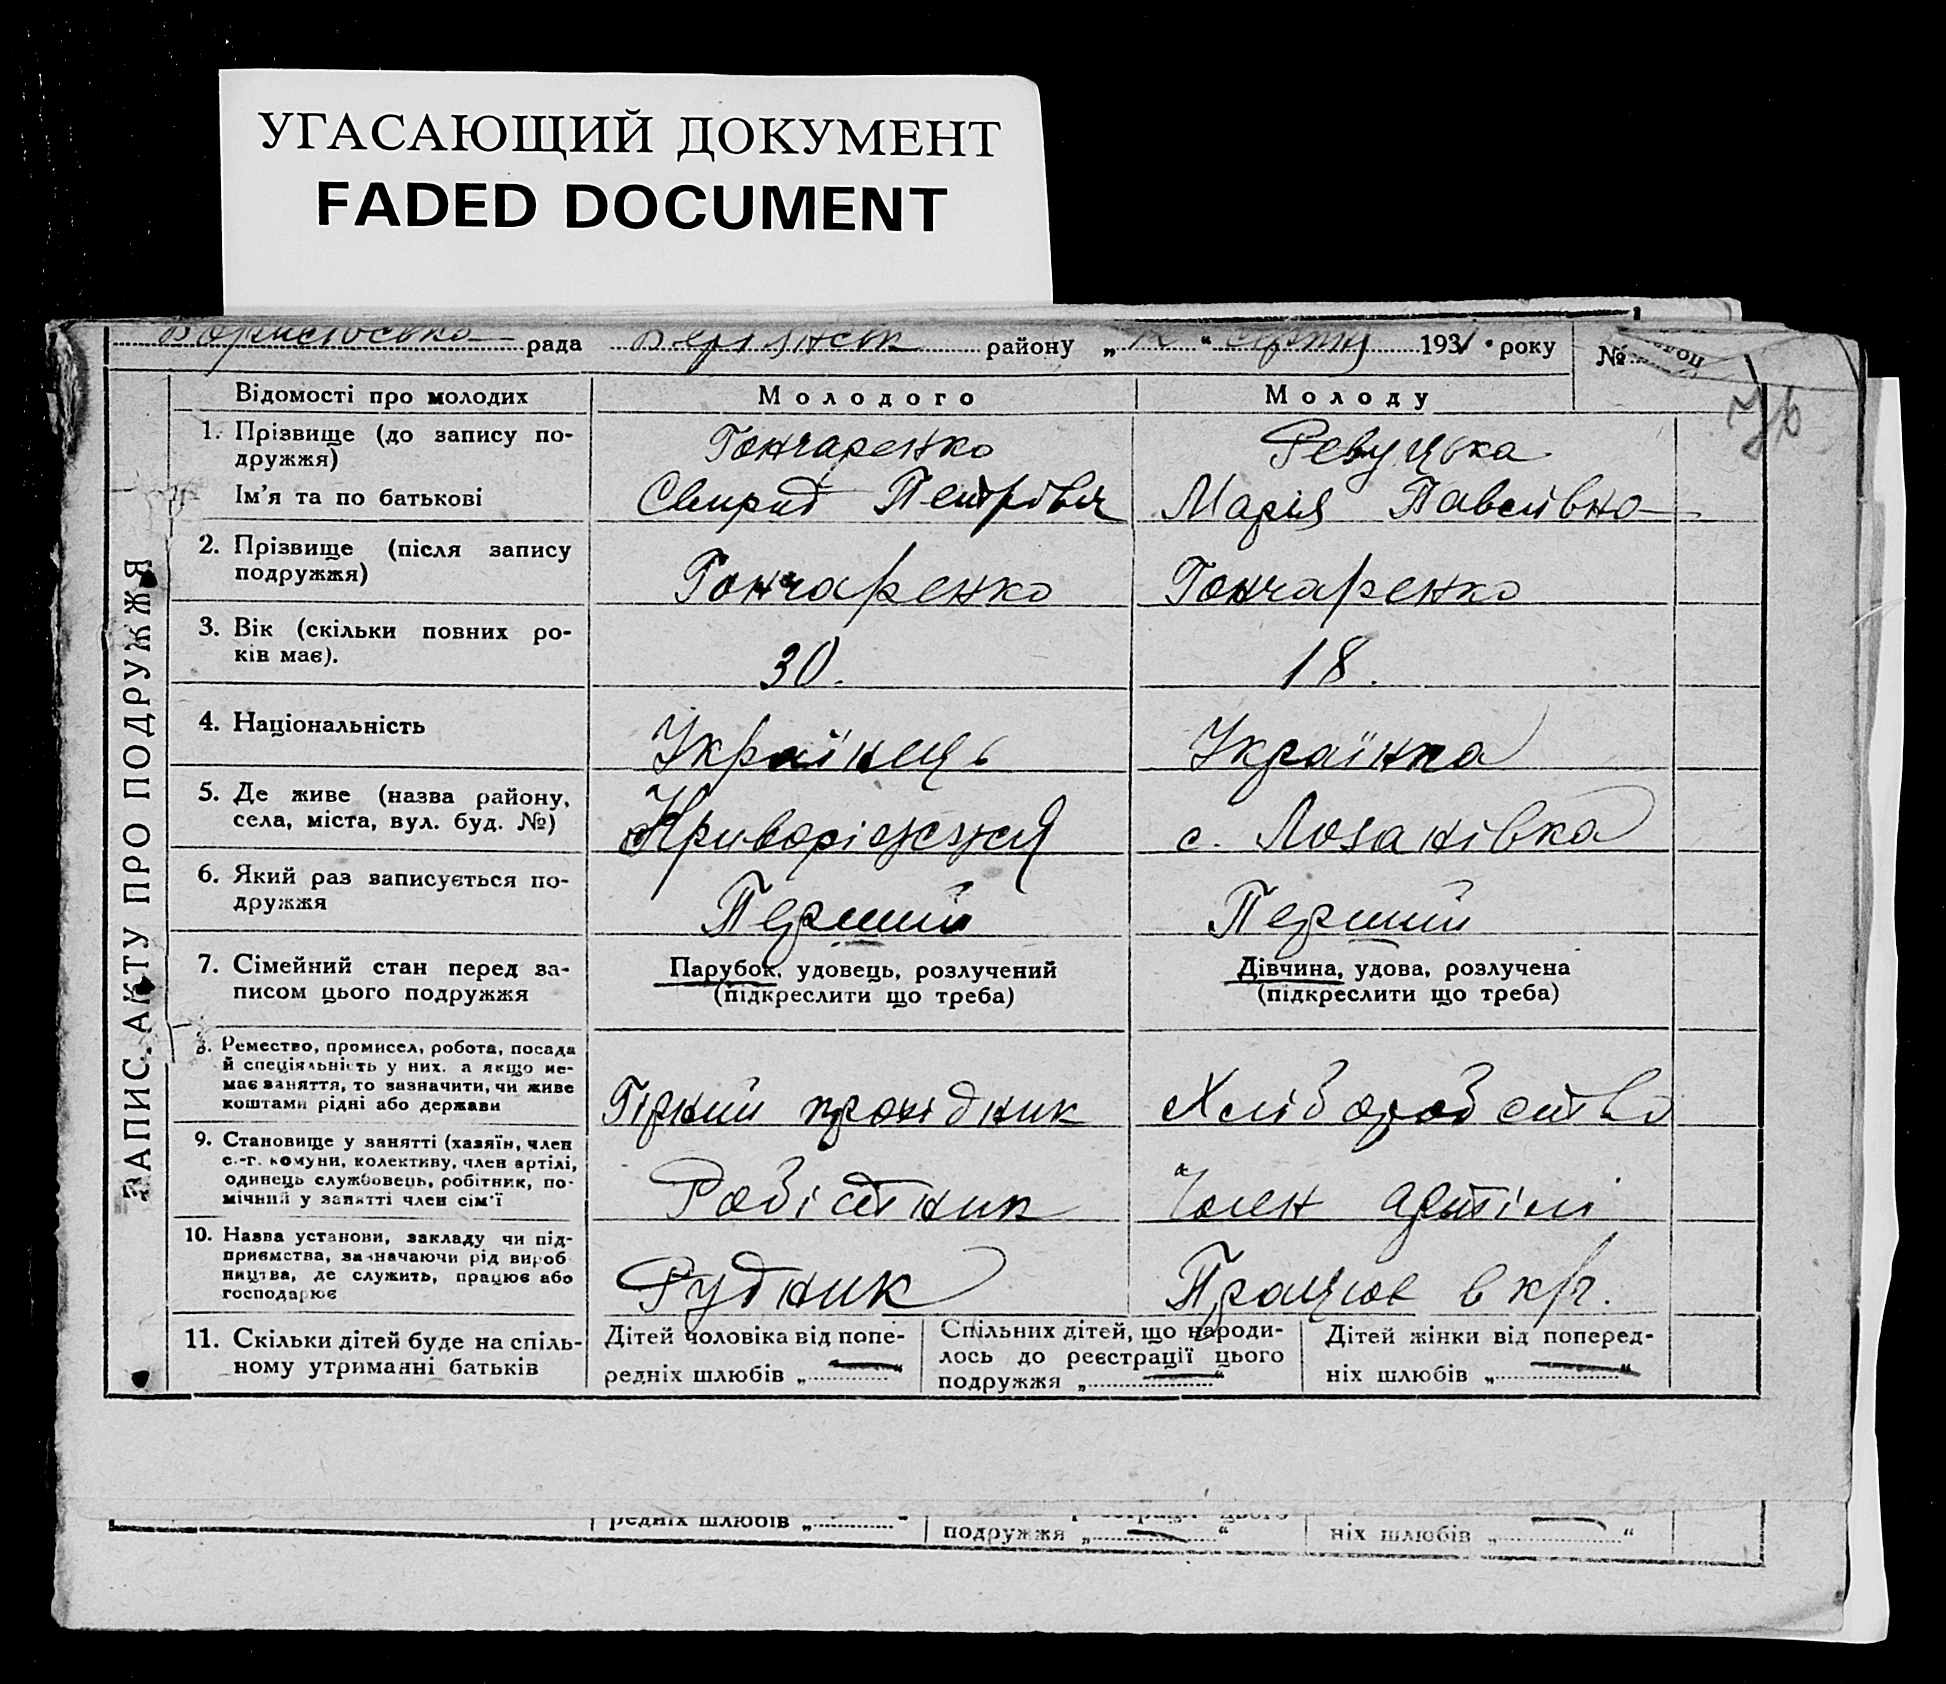 УГАСАЮЩИЙ ДОКУМЕНТ
FADED DOCUMENT
рада району „ “ 1931 року №
ЗАПИС АКТУ ПРО ПОДРУЖЖЯ
Відомості про молодих Молодого Молоду
1. Прізвище (до запису по-
дружжя)
Гончаренко Ревуцька
Ім’я та по батькові Свирид Петрович Марія Павлівна
2. Прізвище (після запису
подружжя)
Гончаренко Гончаренко
3. Вік (скільки повних ро-
ків має).
30. 18.
4. Національність Українець Українка
5. Де живе (назва району,
села, міста, вул. буд. №)
Криворіжжя с. Лозанівка
6. Який раз записується по-
дружжя
Перший Перший
7. Сімейний стан перед за-
писом цього подружжя
Парубок, удовець, розлучений
(підкреслити що треба)
Дівчина, удова, розлучена
(підкреслити що треба)
8. Ремество, промисел, робота, посада
й спеціяльність у них. а якщо не-
має заняття, то зазначити, чи живе
коштами рідні або держави
Гірний Хліборобство
9. Становище у занятті (хазяїн, член
с.-г. комуни, колективу, член артілі,
одинець службовець, робітник, по-
мічний у занятті член сім’ї
Робітник Член артілі
10. Назва установи, закладу чи під-
приємства, зазначаючи рід вироб
ництва, де служить, працює або
господарює
Рудник Працює в кр.
11. Скільки дітей буде на спіль-
ному утриманні батьків
Дітей чоловіка від попе-
редніх шлюбів „ “
Спільних дітей, що народи-
лось до реєстрації цього
подружжя „ “
Дітей жінки від поперед-
ніх шлюбів „ “
редніх шлюбів „ “
подружжя „ “
ніх шлюбів „ “